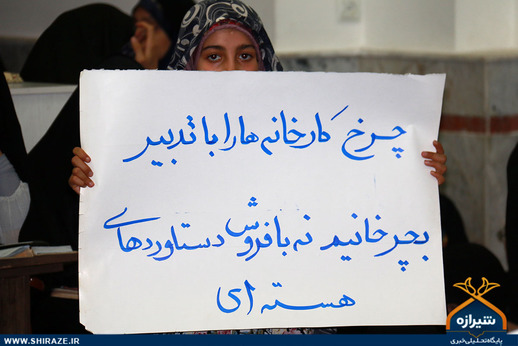 چرخ کارخانه ها را با تدبیر
بچرخانیم نه با فروش دستاوردهای
هسته ای
شیرازه
پایگاه تحلیلی خبری
WWW.SHIRAZE.IR
WWW.SHIRAZE.IR